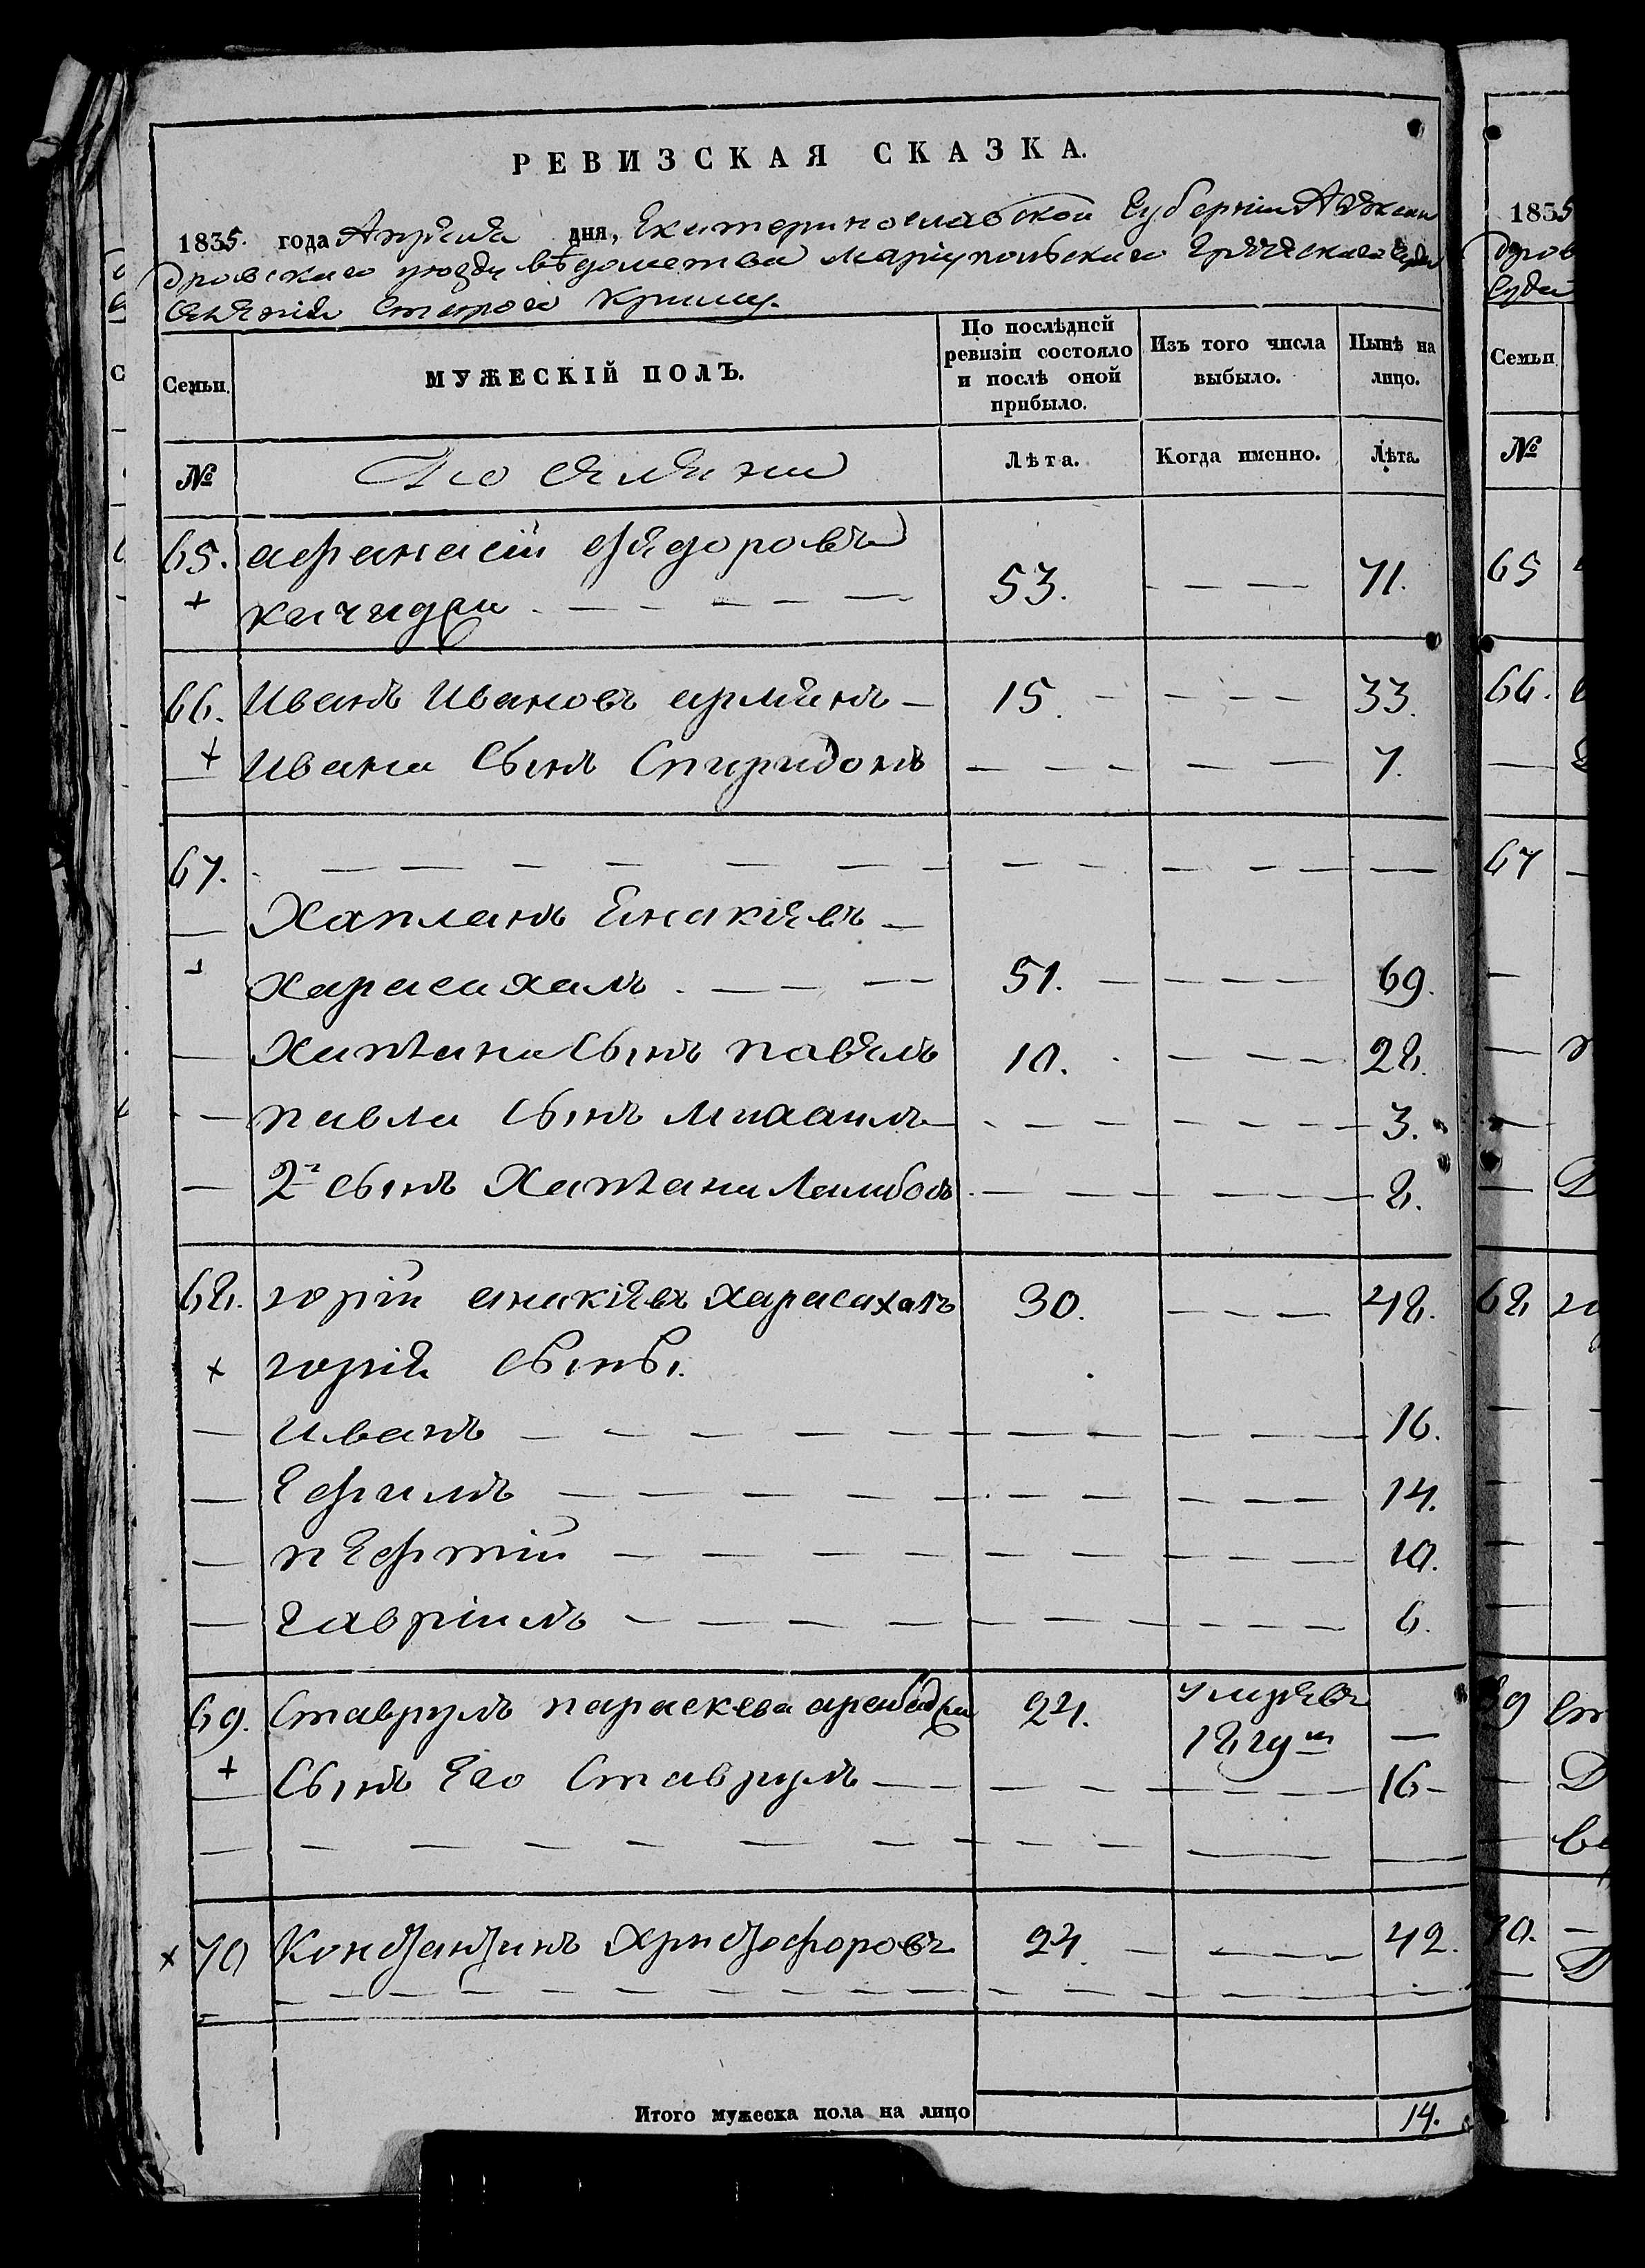 РЕВИЗСКАЯ СКАЗКА.
1835. года Апреля дня, Екатеринославской Губернии Алексан
дровского уезда вѣдомства Мариупольского Греческаго Суда
Селения Старого Крыму.
Семьи. МУЖЕСКІЙ ПОЛЪ. По послѣдней ревизіи состояло и послѣ оной прибыло. Изъ того числа выбыло. Нынѣ на лицо.
№ Поселяни Лѣта. Когда именно. Лѣта.
65. афанасій федоровъ
+ качиджи 53. 71.
66. Иванъ Ивановъ 15. 33.
+ Ивана Сынъ Спиридонъ 7.
67.
Хапланъ Енакіевъ
Харасахалъ 51. 69.
Хаплана Сынъ павелъ 10. 28.
павла Сынъ Михаилъ 3.
2й сынъ Хаплана Ламбосъ 8.
68. юрій енакіевъ харасахалъ 30. 48.
× юрія Сыны.
Иванъ 16.
Ефимъ 14.
пефтій 10.
Гавріилъ 6.
69. Ставрулъ параскева 24. умре въ
182 —
+ Сынъ Его Ставрулъ 16
× 70 Константинъ Христофоровъ 24. 42.
Итого мужеска пола на лицо 14.
1835
дров
Суда
Семьи
№
65
66.
67
68 ю
69 Ст
Д
70.
Д